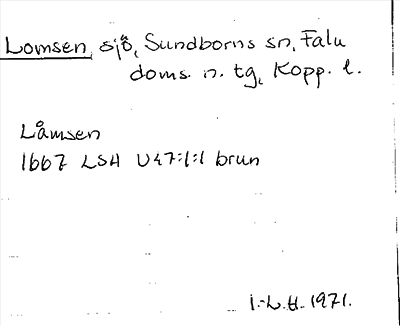 Lomsen, sjö, Sundborns sn, Falu
doms. n. tg, Kopp. l.
Låmsen
1667 LSA U47:1:1 brun
I.-L.H. 1971.